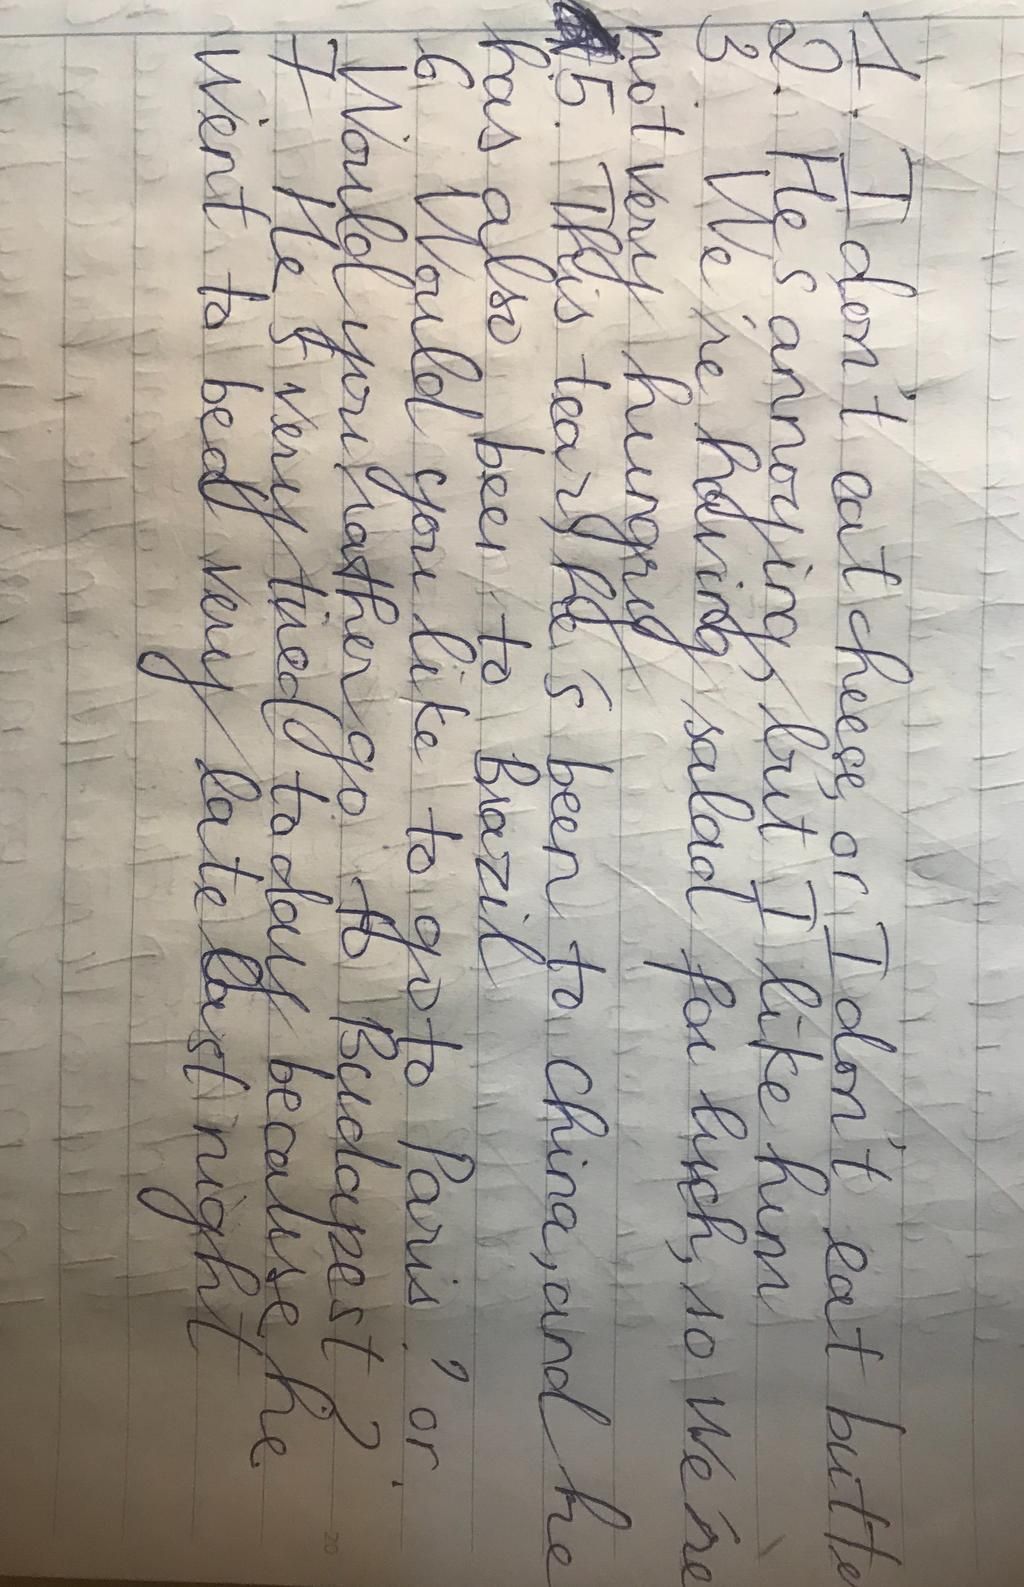 1. I don't eat cheese, or I don't eat butte
2. He's annoying, but I like him
3. We're having salad for luch, so we're
not very hungry
5. This tear, he's been to china, and he
has also been to Brazil
6 Would you like to go to Paris? or
Would you rather go to Budapest?
7 He's very tired to day because he
went to bed very late last night
20